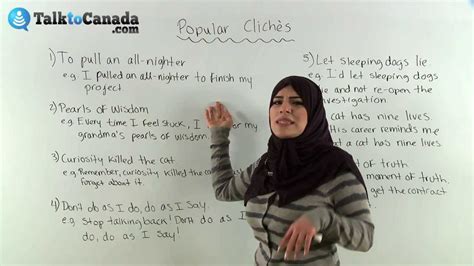 TalktoCanada
.com
Popular Clichès
1) To pull an all-nighter
e.g. I pulled an all-nighter to finish my
project.
2) Pearls of Wisdom
e.g. Every time I feel stuck, I for my
grandma's pearls of wisdom.
3) Curiosity killed the cat
e.g. Remember, curiosity killed the
forget about it.
4) Don't do as I do, do as I say.
e.g. Stop talking back! Don't do as I
do, do as I say!
5) Let sleeping dogs lie
e.g. I'd let sleeping dogs
lie and not re-open the
investigation
cat has nine lives.
This career reminds me
a cat has nine lives.
of truth
moment of truth.
get the contract